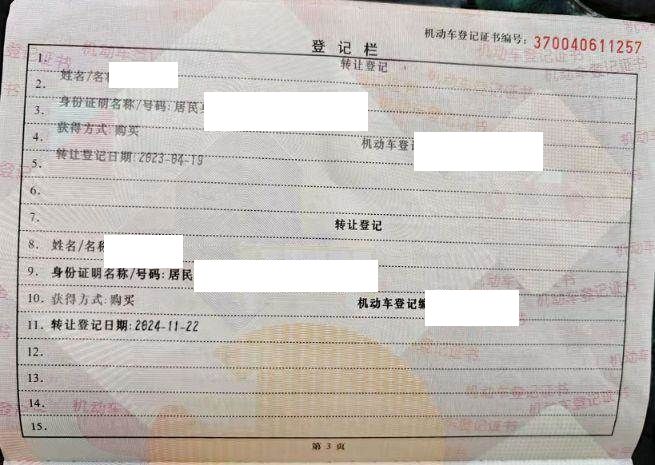 机动车登记证书编号：370040611257
登记栏
1. 转让登记
2. 姓名/名称
3. 身份证明名称/号码：居民
4. 获得方式：购买 机动车登
5. 转让登记日期：2023-04-19
6.
7. 转让登记
8. 姓名/名称
9. 身份证明名称/号码：居民
10. 获得方式：购买 机动车登记编
11. 转让登记日期：2024-11-22
12.
13.
14.
15.
第 3 页